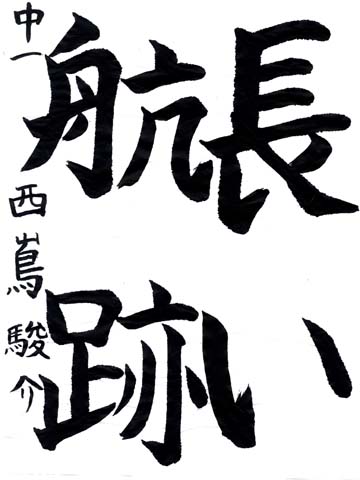 長い
航跡
中一 西嶌駿介